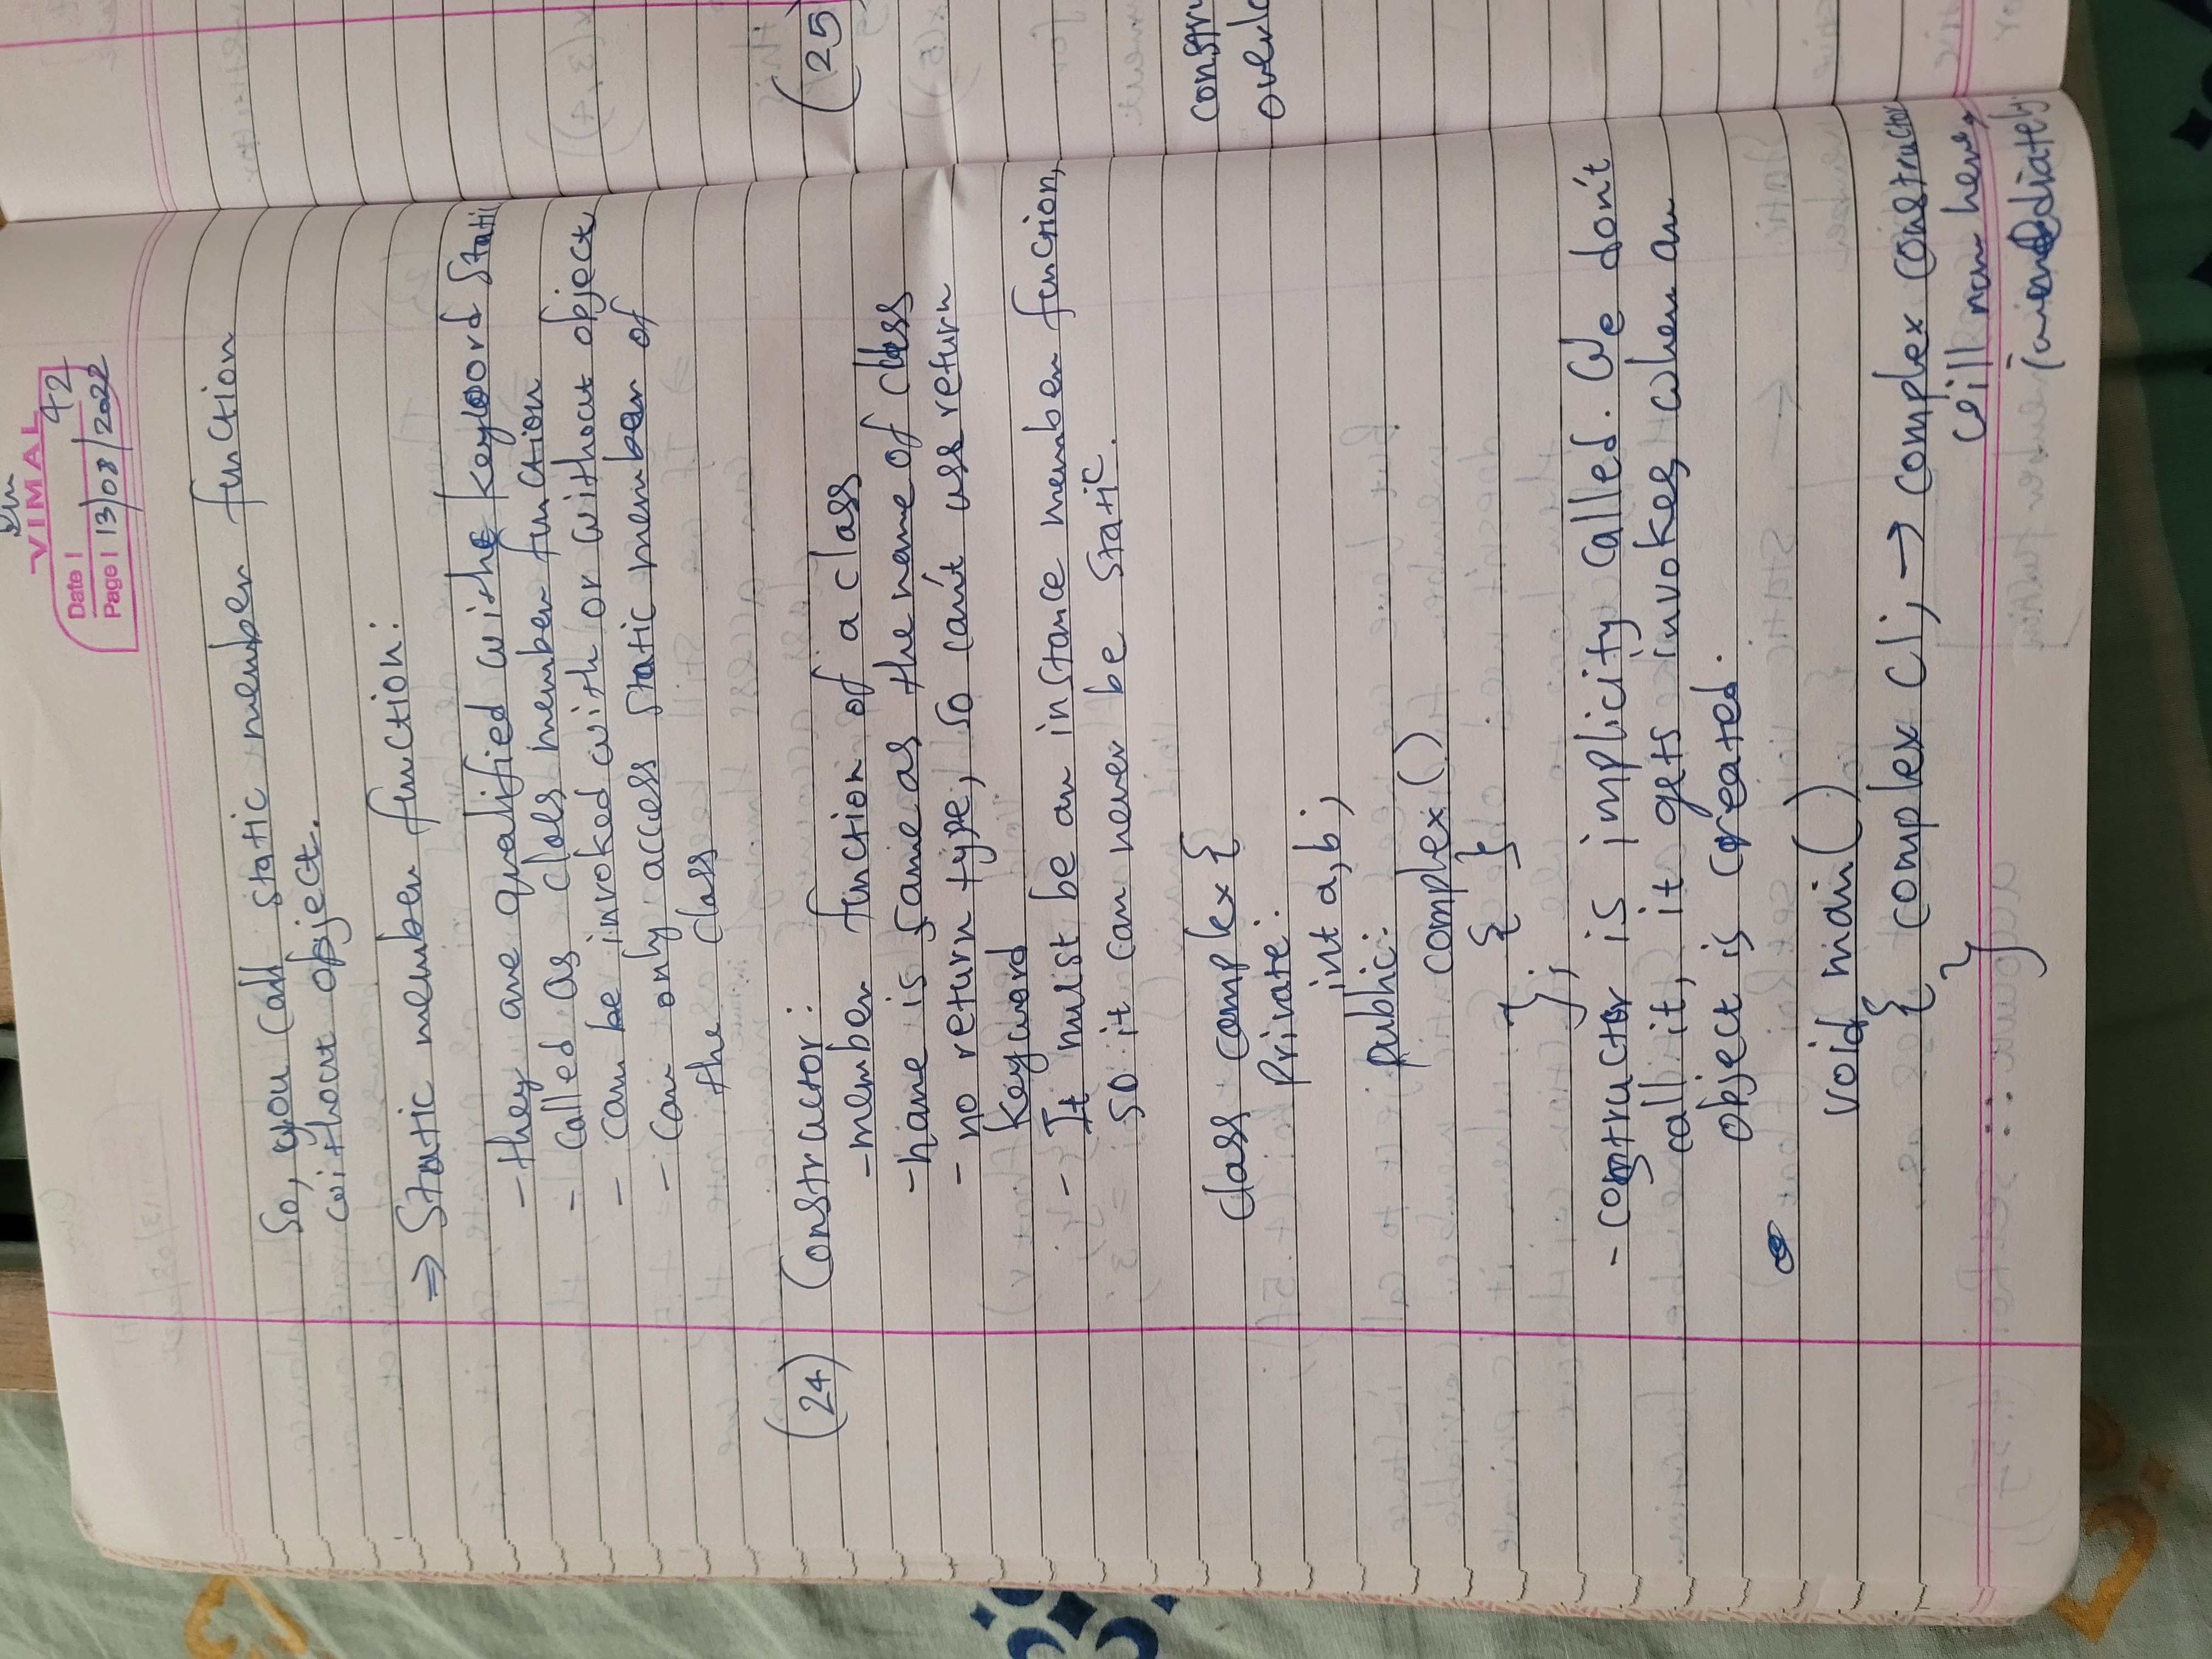 VIMAL
Date | 42
Page | 13/08/2022
So, you call static member function
without object.
⇒ Static member function:
- they are qualified withe keyword Static
- called as class member function
- can be invoked with or without object
- can only access static member of
the class
(24) Constructor:
- member function of a class
- name is same as the name of class
- no return type, so can't use return
keyword
- It must be an instance member function,
so it can never be static.
class complex {
Private:
int a, b;
public:
complex ()
{ }
};
- constructor is implicity called. We don't
call it, it gets invokes when an
object is created.
void main()
{ complex C1; → complex constructor
will run here,
immediately
}
(25)
constru
overlo